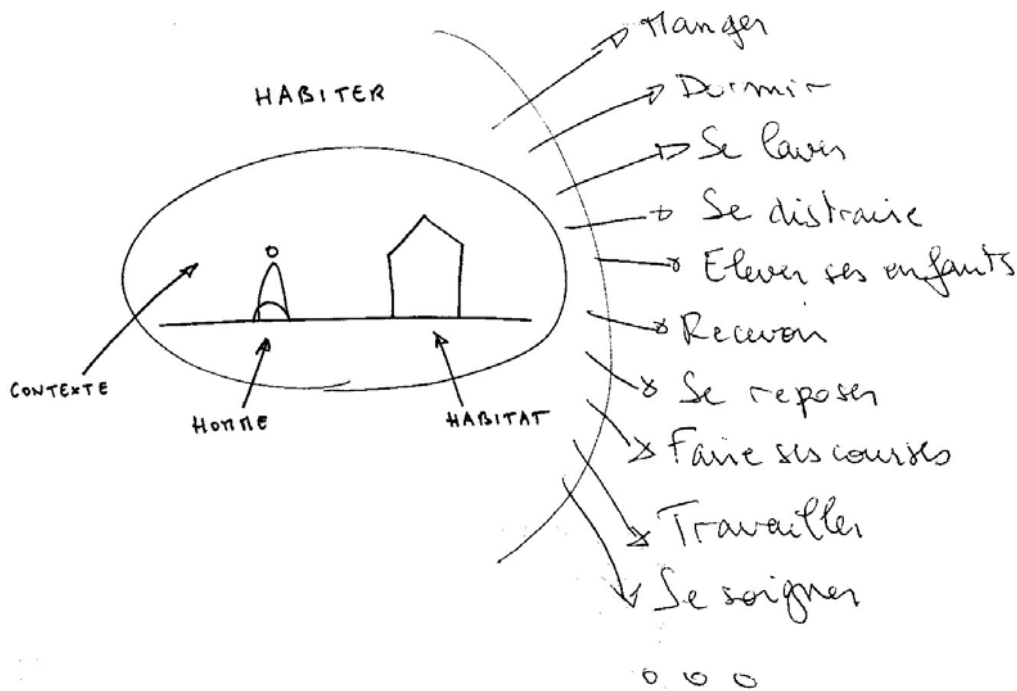 HABITER
CONTEXTE
HOMME
HABITAT
Manger
Dormir
Se laver
Se distraire
Elever ses enfants
Recevoir
Se reposer
Faire ses courses
Travailler
Se soigner